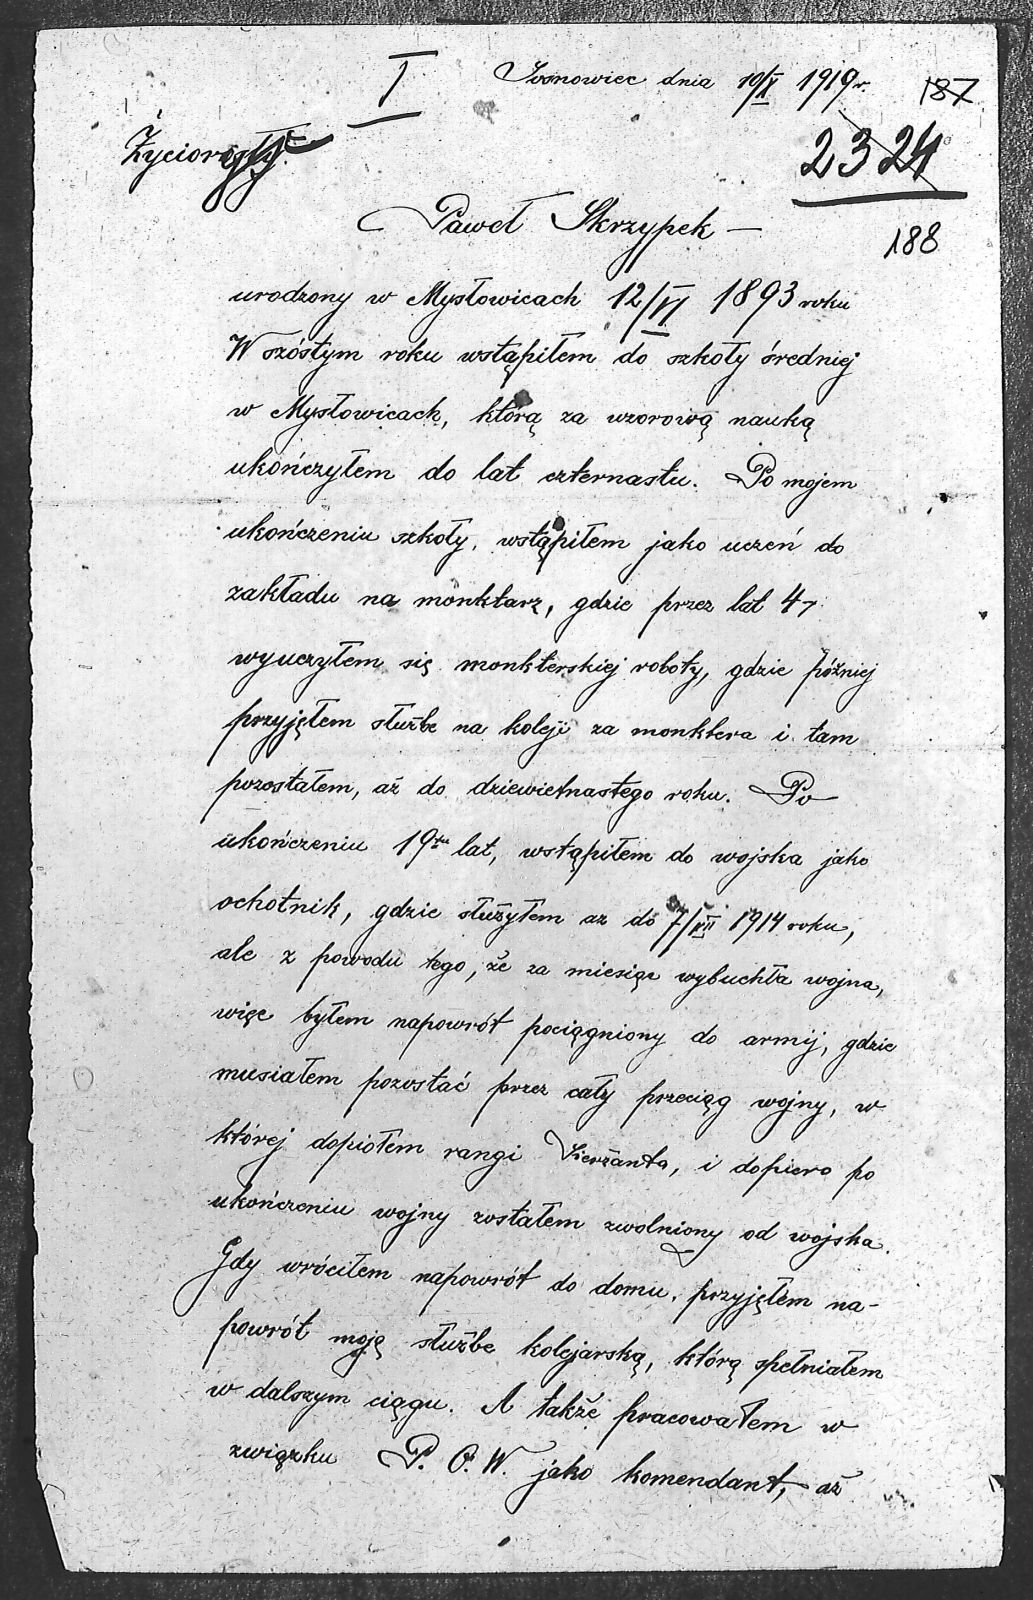 I
Sosnowiec dnia 10/X 1919 r.
187
Życiorysy.
23 24
Paweł Skrzypek —
188
urodzony w Mysłowicach 12/VI 1893 roku
W szóstym roku wstąpiłem do szkoły średniej
w Mysłowicach, którą za wzorową nauką
ukończyłem do lat czternastu. Po mojem
ukończeniu szkoły, wstąpiłem jako uczeń do
zakładu na monktarz, gdzie przez lat 4
wyuczyłem się monkterskiej roboty, gdzie później
przyjęłem służbe na koleji za monktera i tam
pozostałem, aż do dziewietnastego roku. Po
ukończeniu 19tu lat, wstąpiłem do wojska jako
ochotnik, gdzie służyłem az do 7/VII 1914 roku,
ale z powodu tego, że za miesiąc wybuchła wojna,
więc byłem napowrót pociągniony do armij, gdzie
musiałem pozostać przez cały przeciąg wojny, w
której dopiołem rangi Sierżanta, i dopiero po
ukończeniu wojny zostałem zwolniony od wojska.
Gdy wróciłem napowrót do domu, przyjęłem na-
powrót moję służbe kolejarską, którą spełniałem
w dalszym ciągu. A także pracowałem w
związku P. O. W. jako komendant, aż